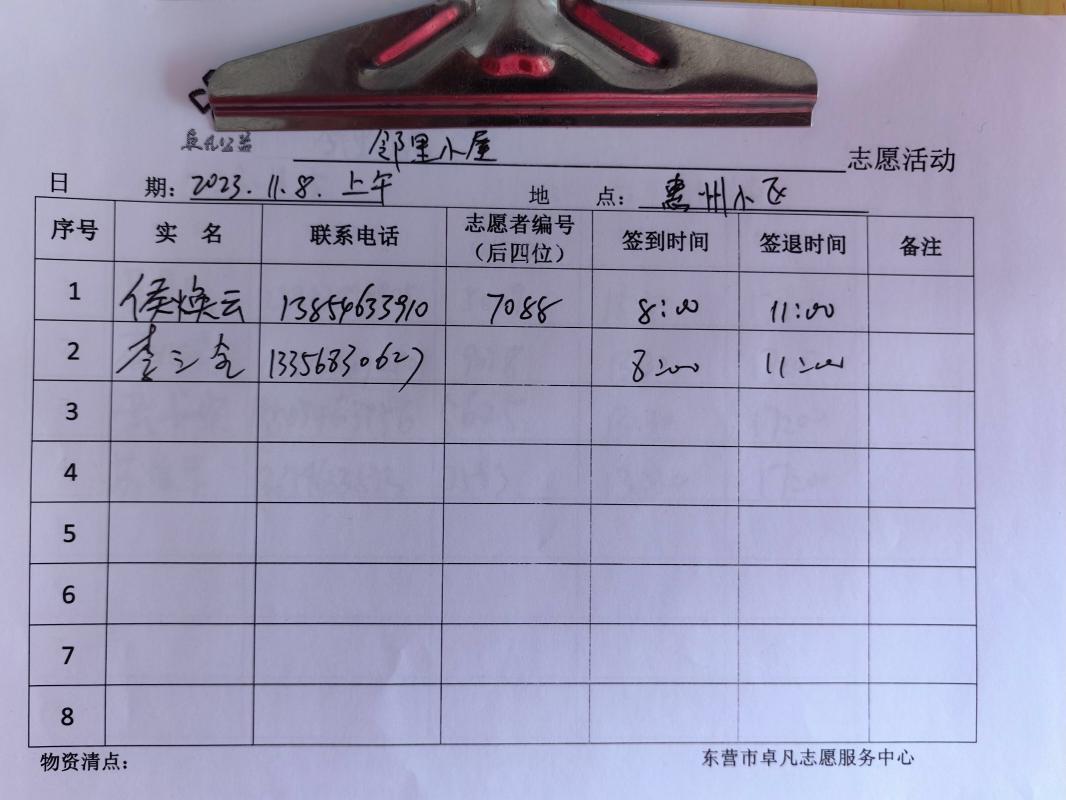 卓凡公益 邻里小屋 志愿活动
日 期：2023.11.8.上午 地 点：惠州小区
序号 实 名 联系电话 志愿者编号（后四位） 签到时间 签退时间 备注
1 侯焕云 13854633910 7088 8:00 11:00
2 李 13356830627 8:00 11:00
3
4
5
6
7
8
物资清点： 东营市卓凡志愿服务中心